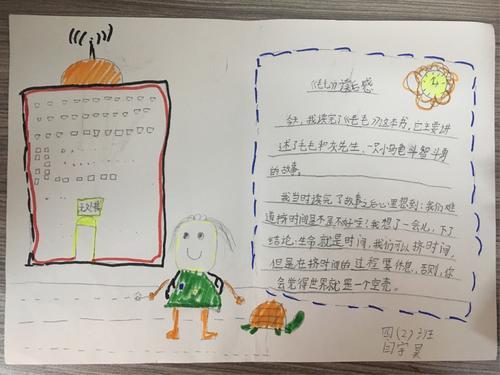 《毛毛》读后感
今天,我读完了《毛毛》这本书,它主要讲
述了毛毛和灰先生,一次次斗智斗勇
的故事。
我当时读完了故事之后心里想到:我们难
道挤时间是不是不好呀?我想了一会儿,下了
结论:生命就是时间,我们可以挤时间,
但是在挤时间的过程要休息,否则,你
会觉得世界就是一个空壳。
四(2)班
闫宇昊